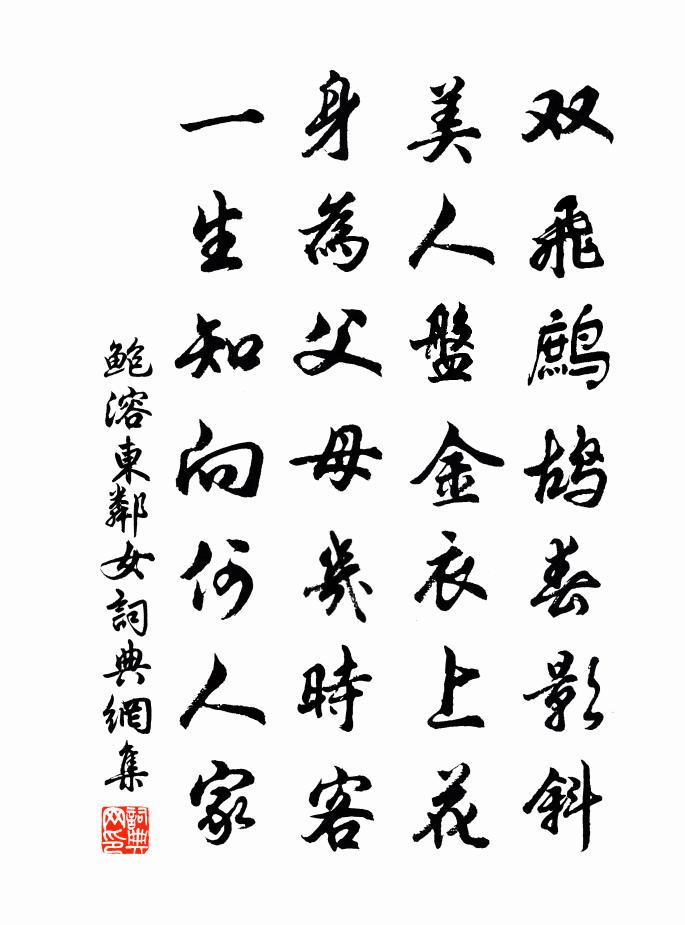 双飛鷓鴣春影斜
美人盤金衣上花
身為父母幾時客
一生知向何人家
鮑溶東鄰女詞典網集
詞典网印